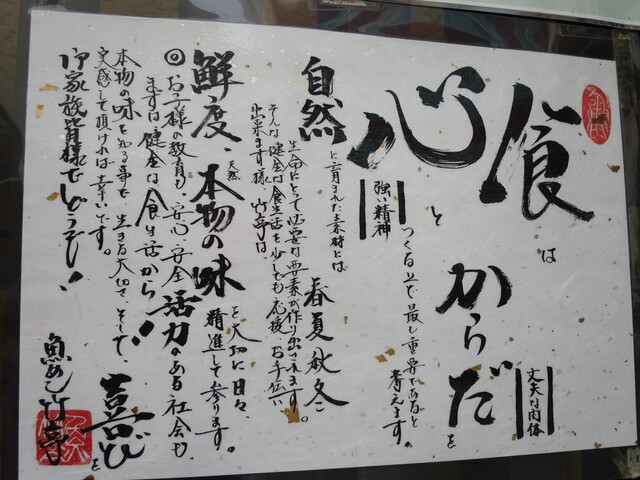 食は
心と
からだを
丈夫な肉体
強い精神
つくる上で最も重要であると考えます。
自然に育まれた素材には春夏秋冬
生命にとって必要な要素が作り出されます。
そんな健全な食生活を少しでも応援、お手伝い
出来ます様、竹亭は、
鮮度、本物の味を大切に日々、精進して参ります。
天然
◎お子様の教育も、安心、安全、活力のある社会も、
まずは健全な食生活から!
本物の味を知る事で、生きる大切さ、そして、喜びを
実感して頂ければ幸いです。
御家族皆様でどうぞ!
魚めし竹亭